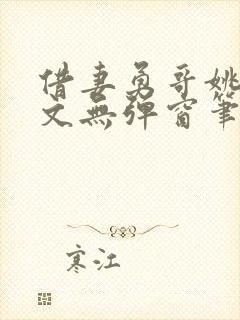 借妻勇哥姚
文无弹窗筆
寒江